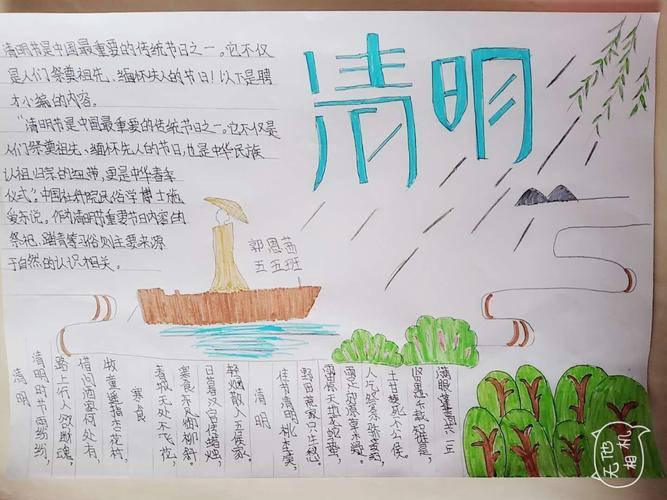 清明节是中国最重要的传统节日之一。它不仅
是人们祭奠祖先、缅怀先人的节日！以下是聘
才小编的内容。
"清明节是中国最重要的传统节日之一。它不仅是
人们祭奠祖先、缅怀先人的节日，也是中华民族
认祖归宗的纽带，更是中华春年
仪式。"中国社科院民俗学博士施
爱东说。作为清明节重要节日内容的
祭祀、踏青等习俗则主要来源
于自然的认识相关。
清明
郭恩茜
五五班
清明
清明时节雨纷纷，
路上行人欲断魂，
借问酒家何处有
牧童遥指杏花村，
寒食
春城无处不飞花，
寒食东风御柳斜。
日暮汉宫传蜡烛，
轻烟散入五侯家。
清明
佳节清明桃李笑，
野田荒冢只生愁。
雷惊天地龙蛇蛰，
雨足郊原草木柔。
人乞祭余骄妾妇，
士甘焚死不公侯。
无他相机